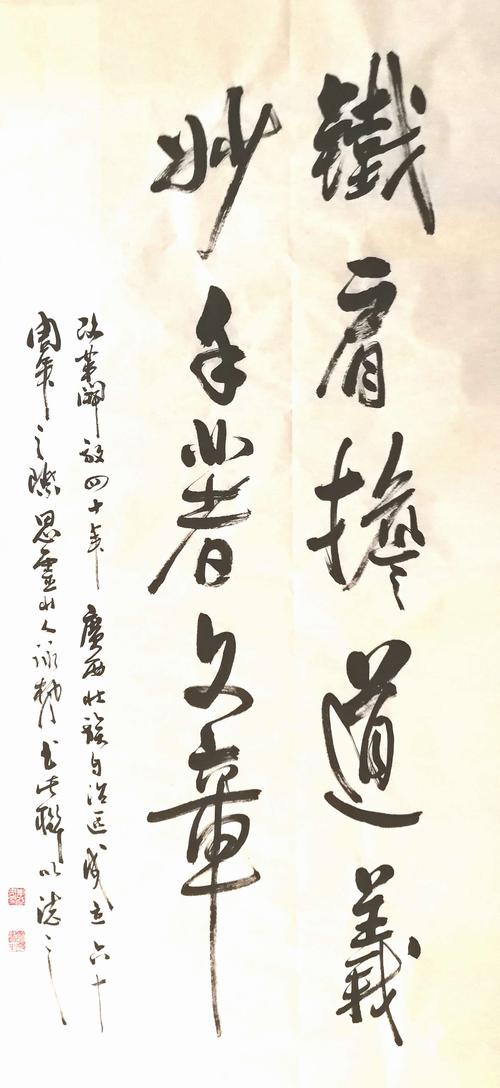 鐵肩擔道義
妙手著文章
改革開放四十年廣西壯族自治區成立六十
周年之際思靈山人詠梅書此聯以誌之